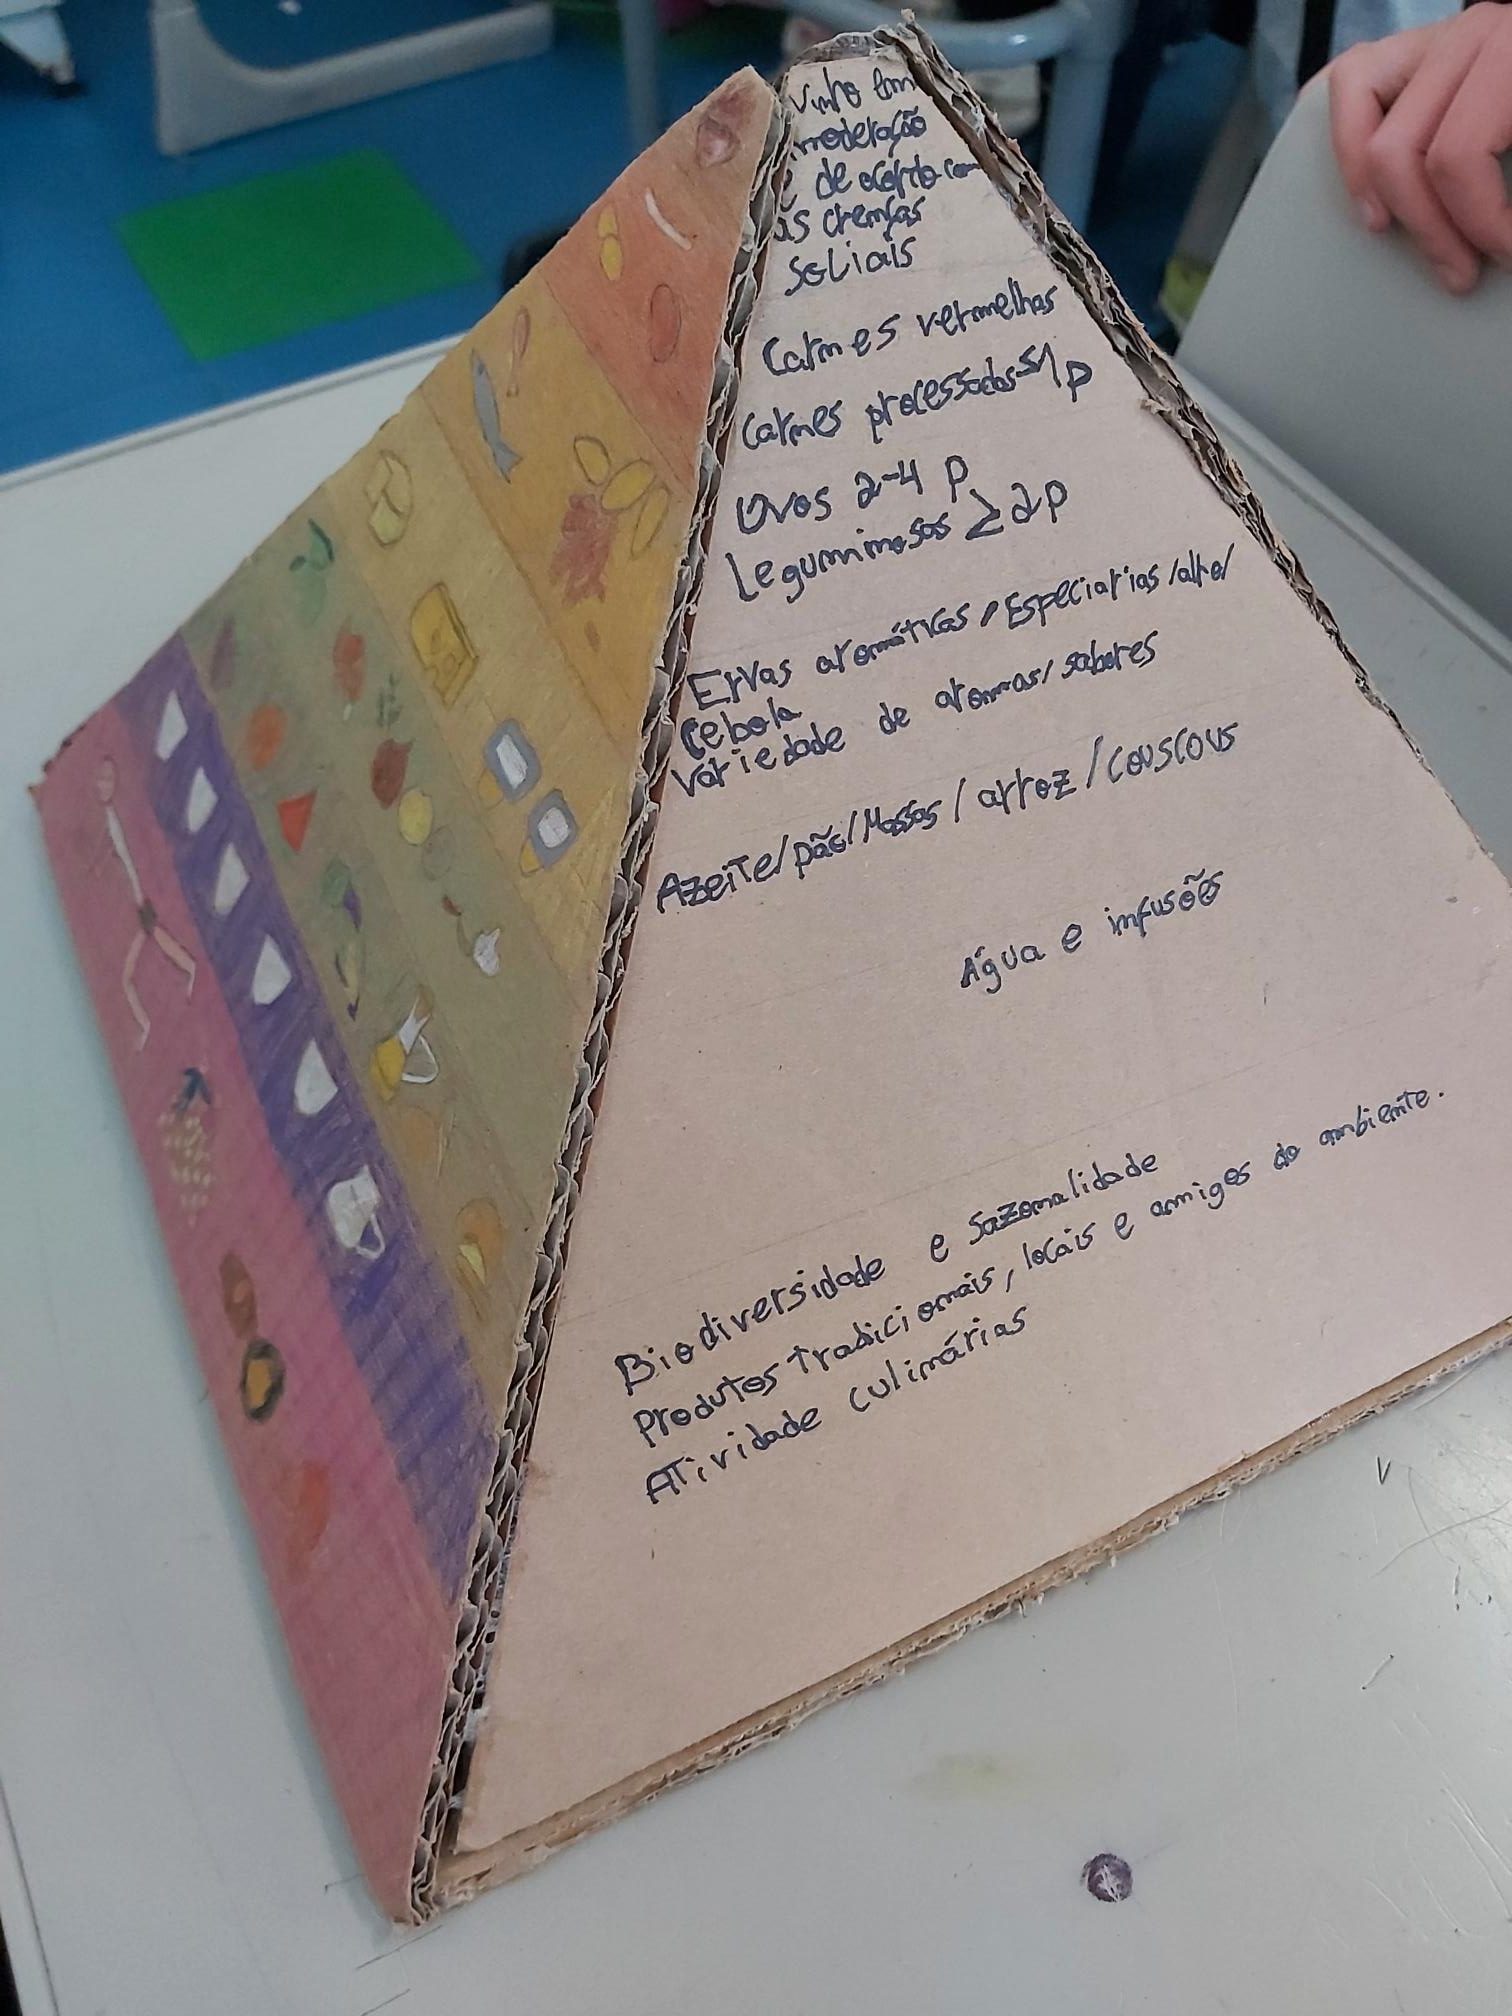 Vinho em
moderação
e de acordo com
as crenças
sociais
Carnes vermelhas
Carnes processadas ≤1 p
Ovos 2-4 p
Leguminosas ≥ 2p
Ervas aromáticas / Especiarias /alho/
cebola
Variedade de aromas/ sabores
Azeite/pão/Massas / arroz / couscous
Água e infusões
Biodiversidade e sazonalidade
Produtos tradicionais, locais e amigos do ambiente.
Atividade culinárias